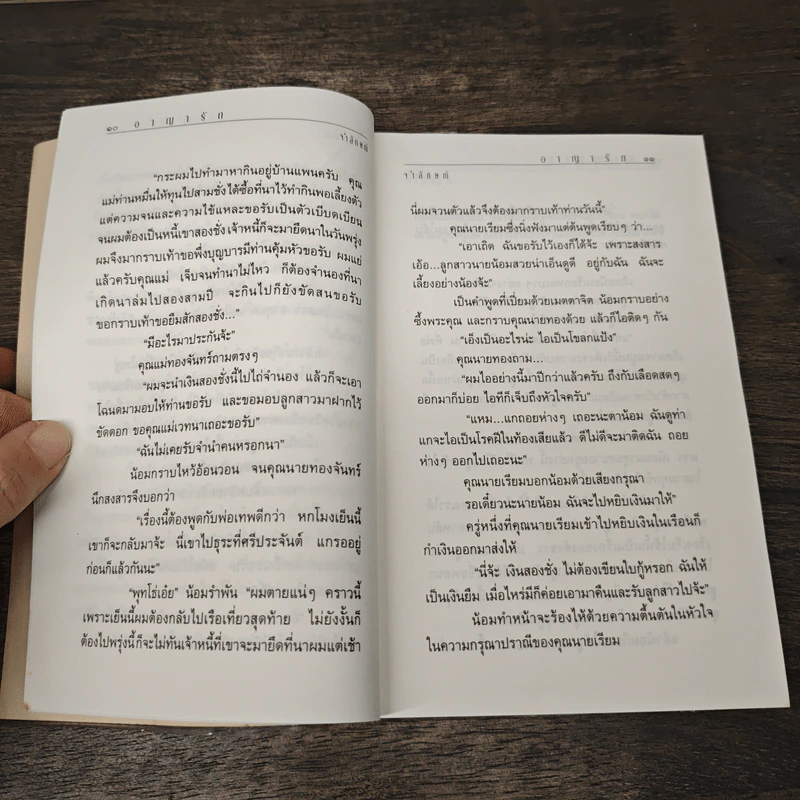 ๑๐ อาญารัก
จำลักษณ์
"กระผมไปทำมาหากินอยู่บ้านแพนครับ คุณ
แม่ท่านหมื่นให้ทุนไปสามชั่งได้ซื้อที่นาไว้ทำกินพอเลี้ยงตัว
แต่ความจนและความไข้แหละขอรับเป็นตัวเบียดเบียน
จนผมต้องเป็นหนี้เขาสองชั่ง เจ้าหนี้ก็จะมายึดนาในวันพรุ่ง
ผมจึงมากราบเท้าขอพึ่งบุญบารมีท่านคุ้มหัวขอรับ ผมแย่
แล้วครับคุณแม่ เจ็บจนทำนาไม่ไหว ก็ต้องจำนองที่นา
เกิดนาล่มไปสองสามปี จะกินไปก็ยังขัดสนขอรับ
ขอกราบเท้าขอยืมสักสองชั่ง..."
"มีอะไรมาประกันจ้ะ"
คุณแม่ทองจันทร์ถามตรงๆ
"ผมจะนำเงินสองชั่งนี้ไปไถ่จำนอง แล้วก็จะเอา
โฉนดมามอบให้ท่านขอรับ และขอมอบลูกสาวมาฝากไว้
ขัดดอก ขอคุณแม่เวทนาเถอะขอรับ"
"ฉันไม่เคยรับจำนำคนหรอกนา"
น้อมกราบไหว้อ้อนวอน จนคุณนายทองจันทร์
นึกสงสารจึงบอกว่า
"เรื่องนี้ต้องพูดกับพ่อเทพดีกว่า หกโมงเย็นนี้
เขาก็จะกลับมาจ้ะ นี่เขาไปธุระที่ศรีประจันต์ แกรออยู่
ก่อนก็แล้วกันนะ"
"พุทโธ่เอ๋ย" น้อมรำพัน "ผมตายแน่ๆ คราวนี้
เพราะเย็นนี้ผมต้องกลับไปเรือเที่ยวสุดท้าย ไม่ยังงั้นก็
ต้องไปพรุ่งนี้ก็จะไม่ทันเจ้าหนี้ที่เขาจะมายึดที่นาผมแต่เช้า
อาญารัก ๑๑
จำลักษณ์
นี่ผมจวนตัวแล้วจึงต้องมากราบเท้าท่านวันนี้"
คุณนายเรียมซึ่งนิ่งฟังมาแต่ต้นพูดเรียบๆ ว่า...
"เอาเถิด ฉันขอรับไว้เองก็ได้จ้ะ เพราะสงสาร
เอ้อ...ลูกสาวนายน้อมสวยน่าเอ็นดูดี อยู่กับฉัน ฉันจะ
เลี้ยงอย่างน้องจ้ะ"
เป็นคำพูดที่เปี่ยมด้วยเมตตาจิต น้อมกราบอย่าง
ซึ้งพระคุณ และกราบคุณนายทองด้วย แล้วก็ไอติดๆ กัน
"เอ็งเป็นอะไรน่ะ ไอเป็นโขลกแป้ง"
คุณนายทองถาม...
"ผมไออย่างนี้มาปีกว่าแล้วครับ ถึงกับเลือดสดๆ
ออกมาก็บ่อย ไอทีก็เจ็บถึงหัวใจครับ"
"แหม...แกถอยห่างๆ เถอะนะตาน้อม ฉันดูท่า
แกจะไอเป็นโรคฝีในท้องเสียแล้ว ดีไม่ดีจะมาติดฉัน ถอย
ห่างๆ ออกไปเถอะนะ"
คุณนายเรียมบอกน้อมด้วยเสียงกรุณา
รอเดี๋ยวนะนายน้อม ฉันจะไปหยิบเงินมาให้"
ครู่หนึ่งที่คุณนายเรียมเข้าไปหยิบเงินในเรือนก็
กำเงินออกมาส่งให้
"นี่จ้ะ เงินสองชั่ง ไม่ต้องเขียนใบกู้หรอก ฉันให้
เป็นเงินยืม เมื่อไหร่มีก็ค่อยเอามาคืนและรับลูกสาวไปจ้ะ"
น้อมทำหน้าจะร้องไห้ด้วยความตื้นตันในหัวใจ
ในความกรุณาปราณีของคุณนายเรียม